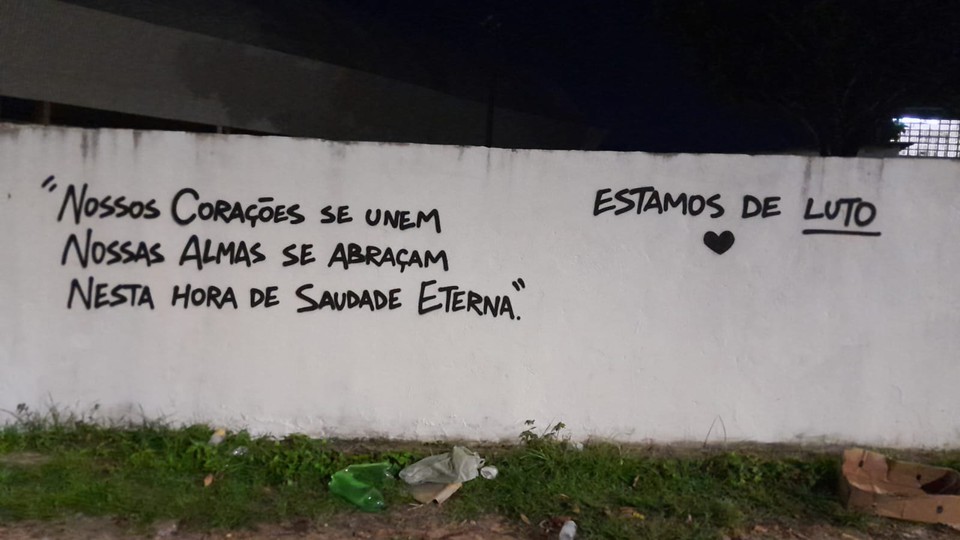 "Nossos Corações se unem
Nossas Almas se abraçam
Nesta hora de Saudade Eterna".
ESTAMOS DE LUTO